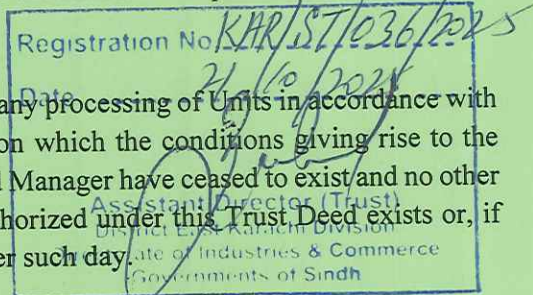 Registration No. KAR/ST/036/2025
Date 21/10/2025
any processing of Units in accordance with
on which the conditions giving rise to the
Manager have ceased to exist and no other
Assistant Director (Trust)
horized under this Trust Deed exists or, if
District East Karachi Division
er such day.
ate of Industries & Commerce
Governments of Sindh